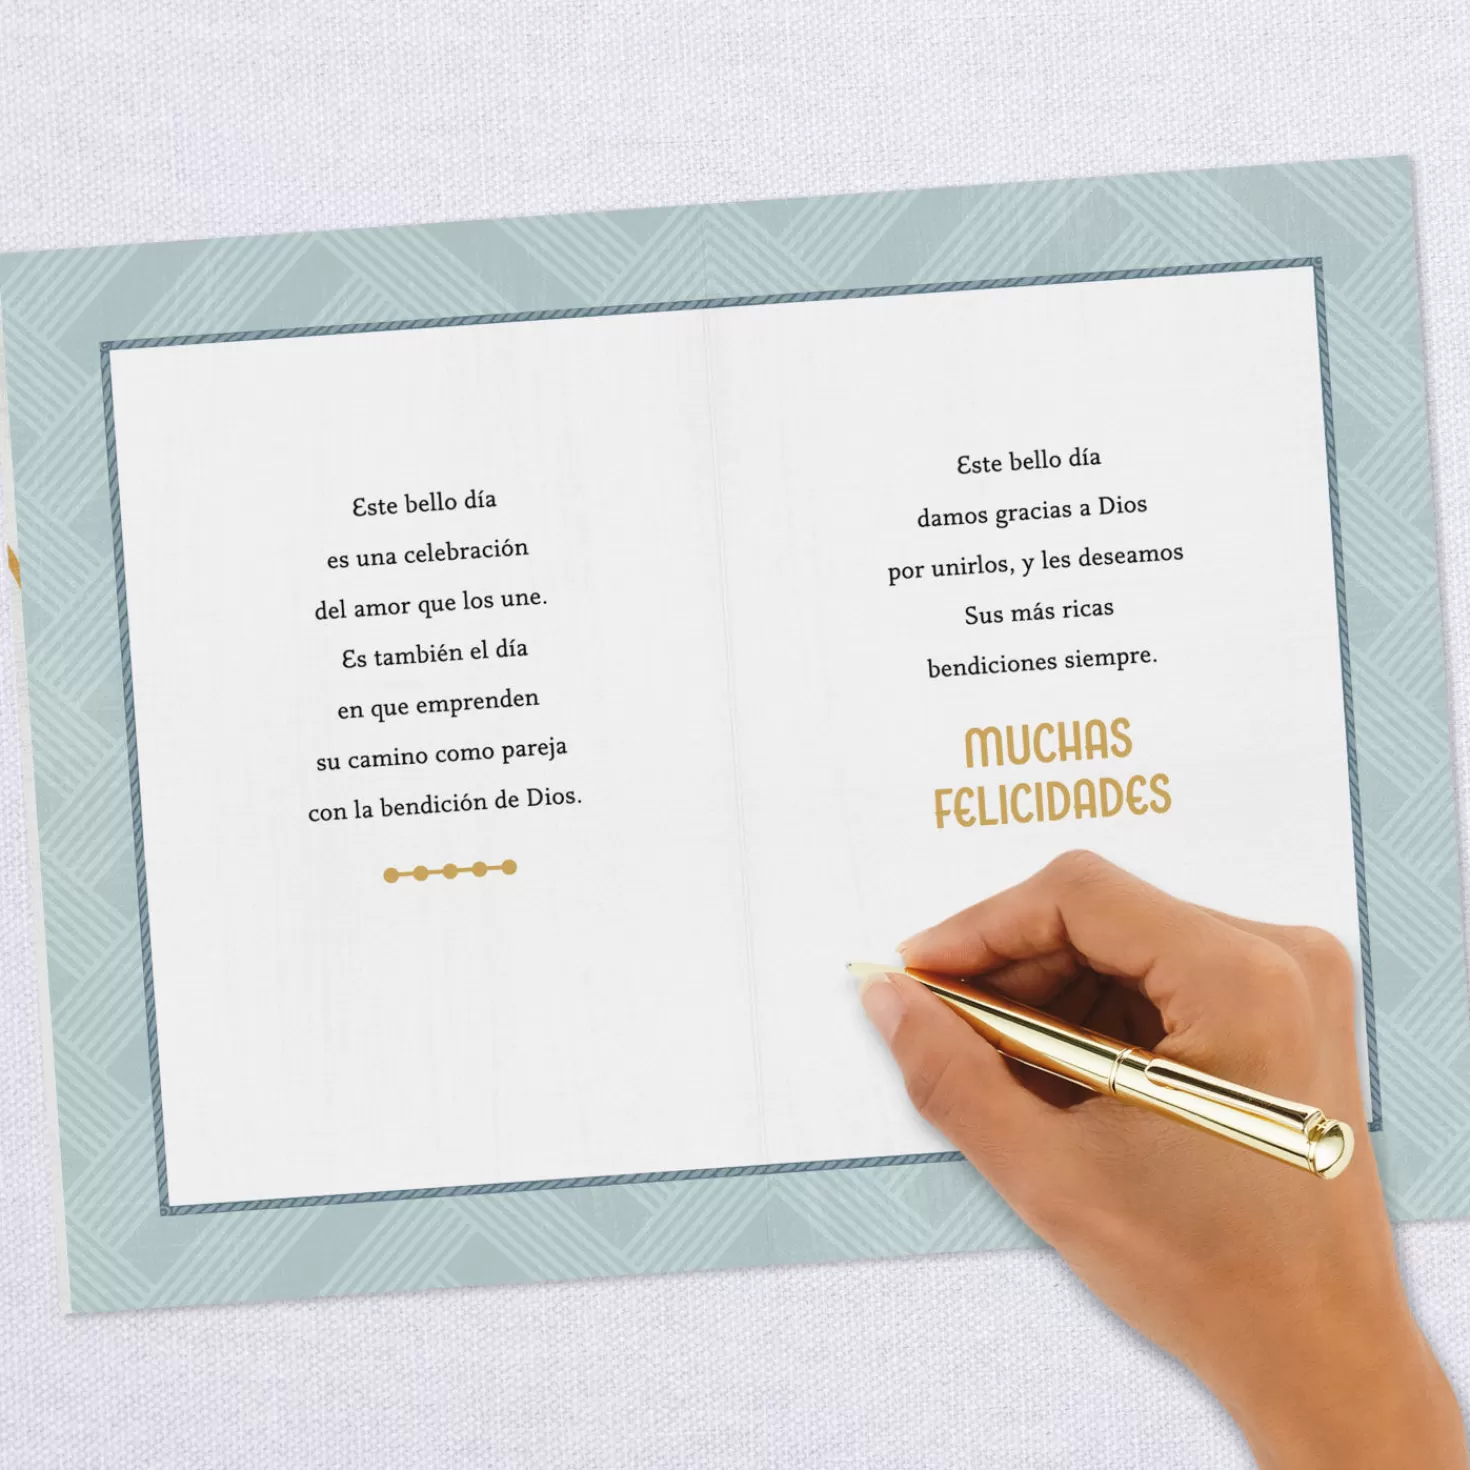 Este bello día
es una celebración
del amor que los une.
Es también el día
en que emprenden
su camino como pareja
con la bendición de Dios.
Este bello día
damos gracias a Dios
por unirlos, y les deseamos
Sus más ricas
bendiciones siempre.
MUCHAS
FELICIDADES